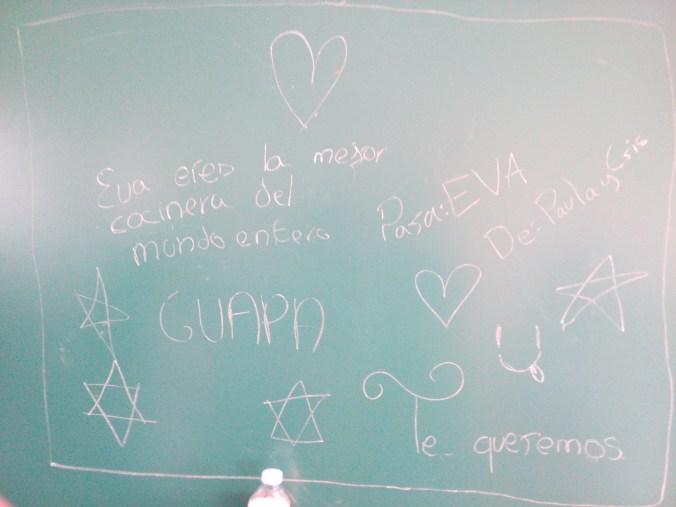 Eva eres la mejor
cocinera del
mundo entero
Para: EVA
De: Paula y Cris
GUAPA
Te queremos.